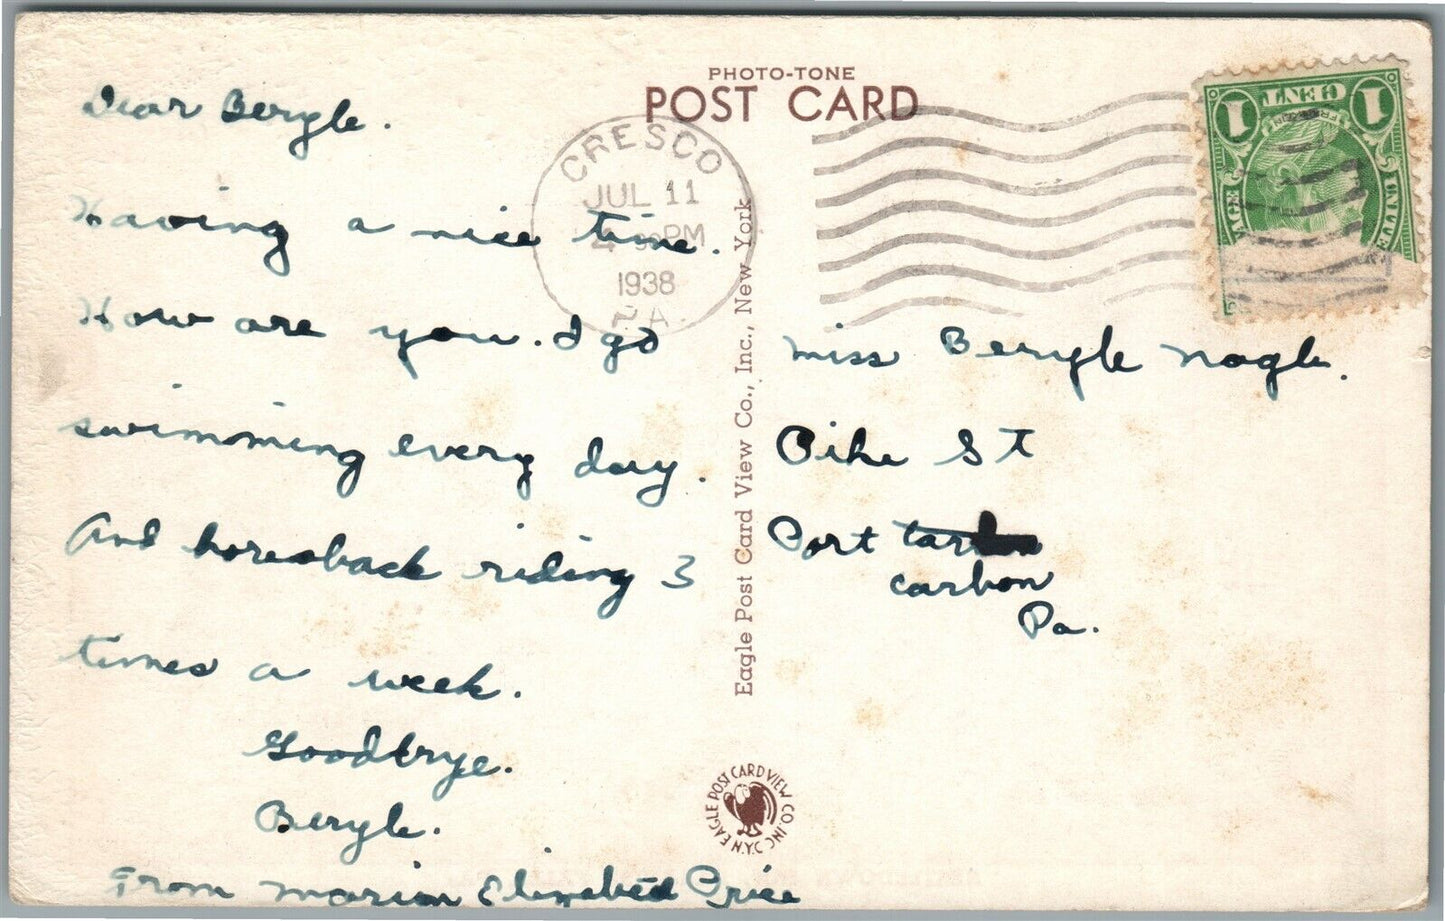 PHOTO-TONE
POST CARD
CRESCO
JUL 11
4 PM
1938
PA.
1 CENT 1
Dear Beryle.
Having a nice time.
How are you. I go
swimming every day.
And horesback riding 3
times a week.
Goodbye.
Beryle.
From Marion Elizabeth Price
Miss Beryle Nagle.
Pike St
Port
carbon
Pa.
Eagle Post Card View Co., Inc., New York
EAGLE POST CARD VIEW CO. INC. N.Y.C.